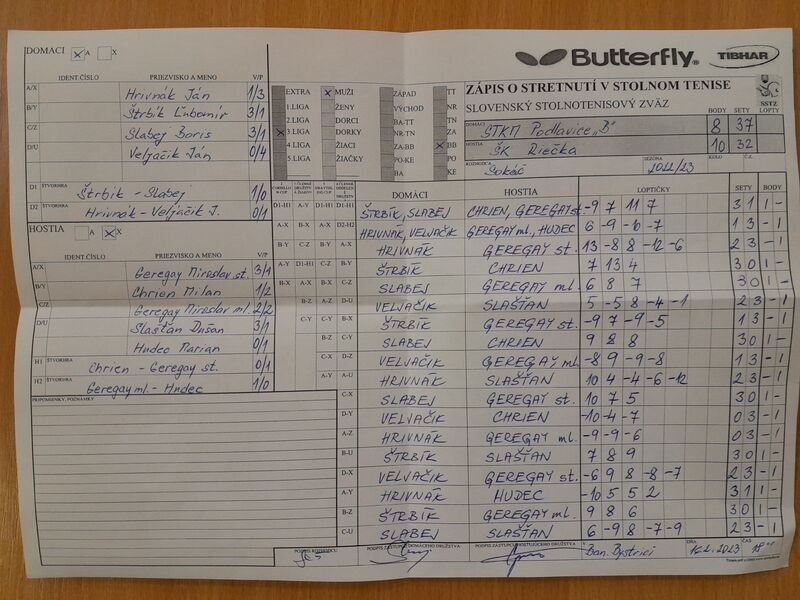 DOMACI A X
Butterfly TIBHAR
IDENT.ČÍSLO PRIEZVISKO A MENO V/P
A/X Hrivnák Ján 1/3
B/Y Štrbík Ľubomír 3/1
C/Z Slabej Boris 3/1
D/U Veljačik Ján 0/4
D1 ŠTVORHRA Štrbík - Slabej 1/0
D2 ŠTVORHRA Hrivnák - Veljačik J. 0/1
HOSTIA A X
IDENT.ČÍSLO PRIEZVISKO A MENO V/P
A/X Geregay Miroslav st. 3/1
B/Y Chrien Milan 1/2
C/Z Geregay Miroslav ml. 2/2
D/U Slašťan Dušan 3/1
Hudec Marian 0/1
H1 ŠTVORHRA Chrien - Geregay st. 0/1
H2 ŠTVORHRA Geregay ml. - Hudec 1/0
PRIPOMIENKY, POZNÁMKY
EXTRA MUŽI ZÁPAD TT
1.LIGA ŽENY VÝCHOD NR
2.LIGA DORCI BA-TT TN
3.LIGA DORKY NR-TN ZA
4.LIGA ŽIACI ZA-BB BB
5.LIGA ŽIAČKY PO-KE PO
BA KE
ZÁPIS O STRETNUTÍ V STOLNOM TENISE
SLOVENSKÝ STOLNOTENISOVÝ ZVÄZ
SSTZ
BODY SETY LOPTY
DOMÁCI ŠTKM Podlavice „B" 8 37
HOSTIA ŠK Riečka 10 32
ROZHODCA Sokáč SEZÓNA 2022/23 KOLO Č.
DOMÁCI HOSTIA LOPTIČKY SETY BODY
D1-H1 A-Y D1-H1 D1-H1 ŠTRBÍK, SLABEJ CHRIEN, GEREGAY st. -9 7 11 7 3 1 1 -
A-X B-X A-X D2-H2 HRIVNÁK, VELJAČIK GEREGAY ml, HUDEC 6 -9 -6 -7 1 3 - 1
B-Y C-Z B-Y A-X HRIVNÁK GEREGAY st. 13 -8 8 -12 -6 2 3 - 1
A-Y D1-H1 C-Z B-Y ŠTRBÍK CHRIEN 7 13 4 3 0 1 -
B-X A-X C-Z SLABEJ GEREGAY ml. 6 8 7 3 0 1 -
B-Z A-Z D-U VELJAČIK SLAŠŤAN 5 -5 8 -4 -1 2 3 - 1
C-Y B-X ŠTRBÍK GEREGAY st. -9 7 -9 -5 1 3 - 1
B-Z C-Y SLABEJ CHRIEN 9 8 8 3 0 1 -
C-X D-Z VELJAČIK GEREGAY ml. -8 9 -9 -8 1 3 - 1
A-Y A-U HRIVNÁK SLAŠŤAN 10 4 -4 -6 -12 2 3 - 1
C-X SLABEJ GEREGAY st. 10 7 5 3 0 1 -
D-Y VELJAČIK CHRIEN -10 -4 -7 0 3 - 1
A-Z HRIVNÁK GEREGAY ml. -9 -9 -6 0 3 - 1
B-U ŠTRBÍK SLAŠŤAN 7 8 9 3 0 1 -
D-X VELJAČIK GEREGAY st. -6 9 8 -8 -7 2 3 - 1
A-Y HRIVNÁK HUDEC -10 5 5 2 3 1 1 -
B-Z ŠTRBÍK GEREGAY ml. 9 8 6 3 0 1 -
C-U SLABEJ SLAŠŤAN 6 -9 8 -7 -9 2 3 - 1
PODPIS ROZHODCU PODPIS ZÁSTUPCU DOMÁCEHO DRUŽSTVA PODPIS ZÁSTUPCU HOSŤUJÚCEHO DRUŽSTVA V Ban. Bystrici DŇA 16.2.2023 ČAS 18 00